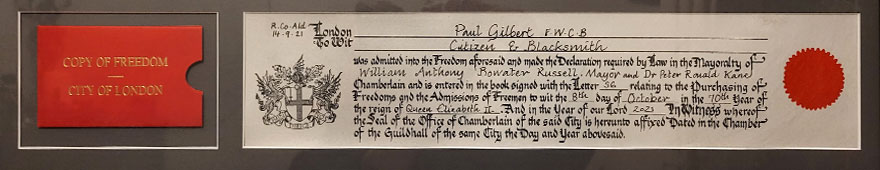 COPY OF FREEDOM
CITY OF LONDON
R. Co. Ald.
14·9·21
London
To Wit
Paul Gilbert F.W.C.B
Citizen & Blacksmith
was admitted into the Freedom aforesaid and made the Declaration required by Law in the Mayoralty of
William Anthony Bowater Russell Mayor and Dr Peter Ronald Kane
Chamberlain and is entered in the book signed with the Letter S6 relating to the Purchasing of
Freedoms and the Admissions of Freemen to wit the 8th day of October in the 70th Year of
the reign of Queen Elizabeth II And in the Year of our Lord 2021 In Witness whereof
the Seal of the Office of Chamberlain of the said City is hereunto affixed Dated in the Chamber
of the Guildhall of the same City the Day and Year abovesaid.